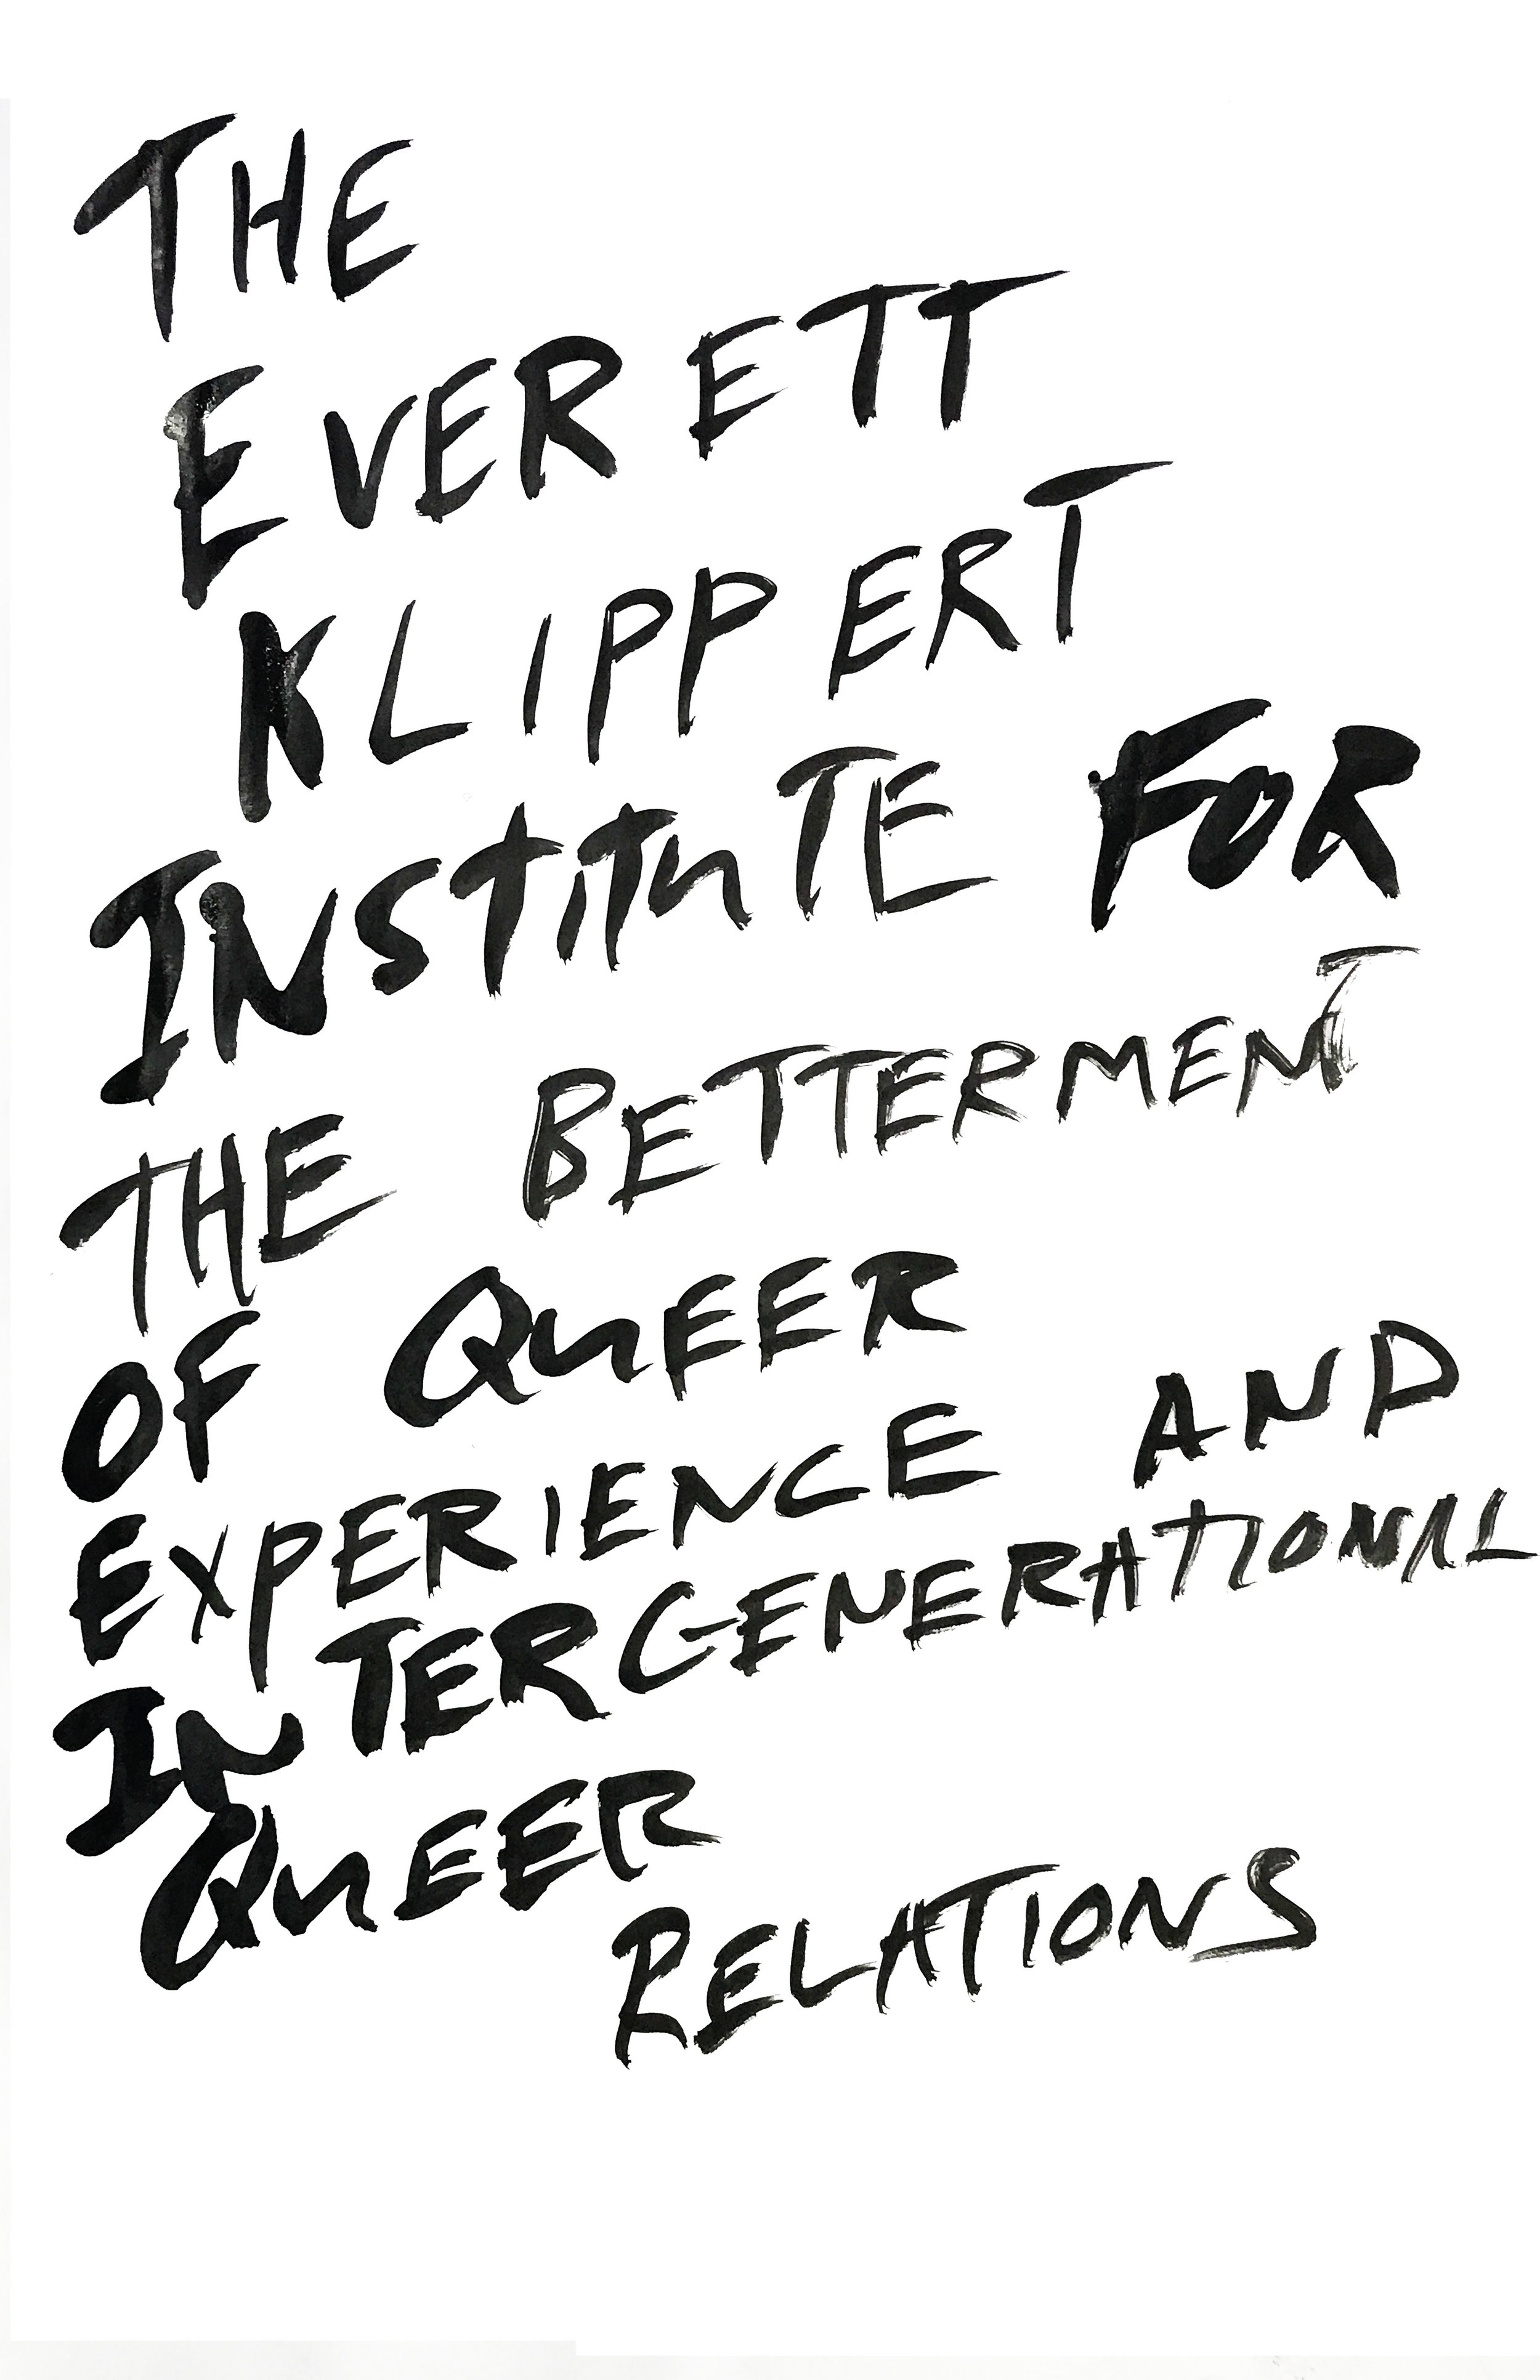 THE
EVERETT
KLIPPERT
INStituTE FOR
THE BETTERMENT
OF QuEER
EXPERIENCE AND
INTERGENERATIONAL
QuEER
RELATIONS